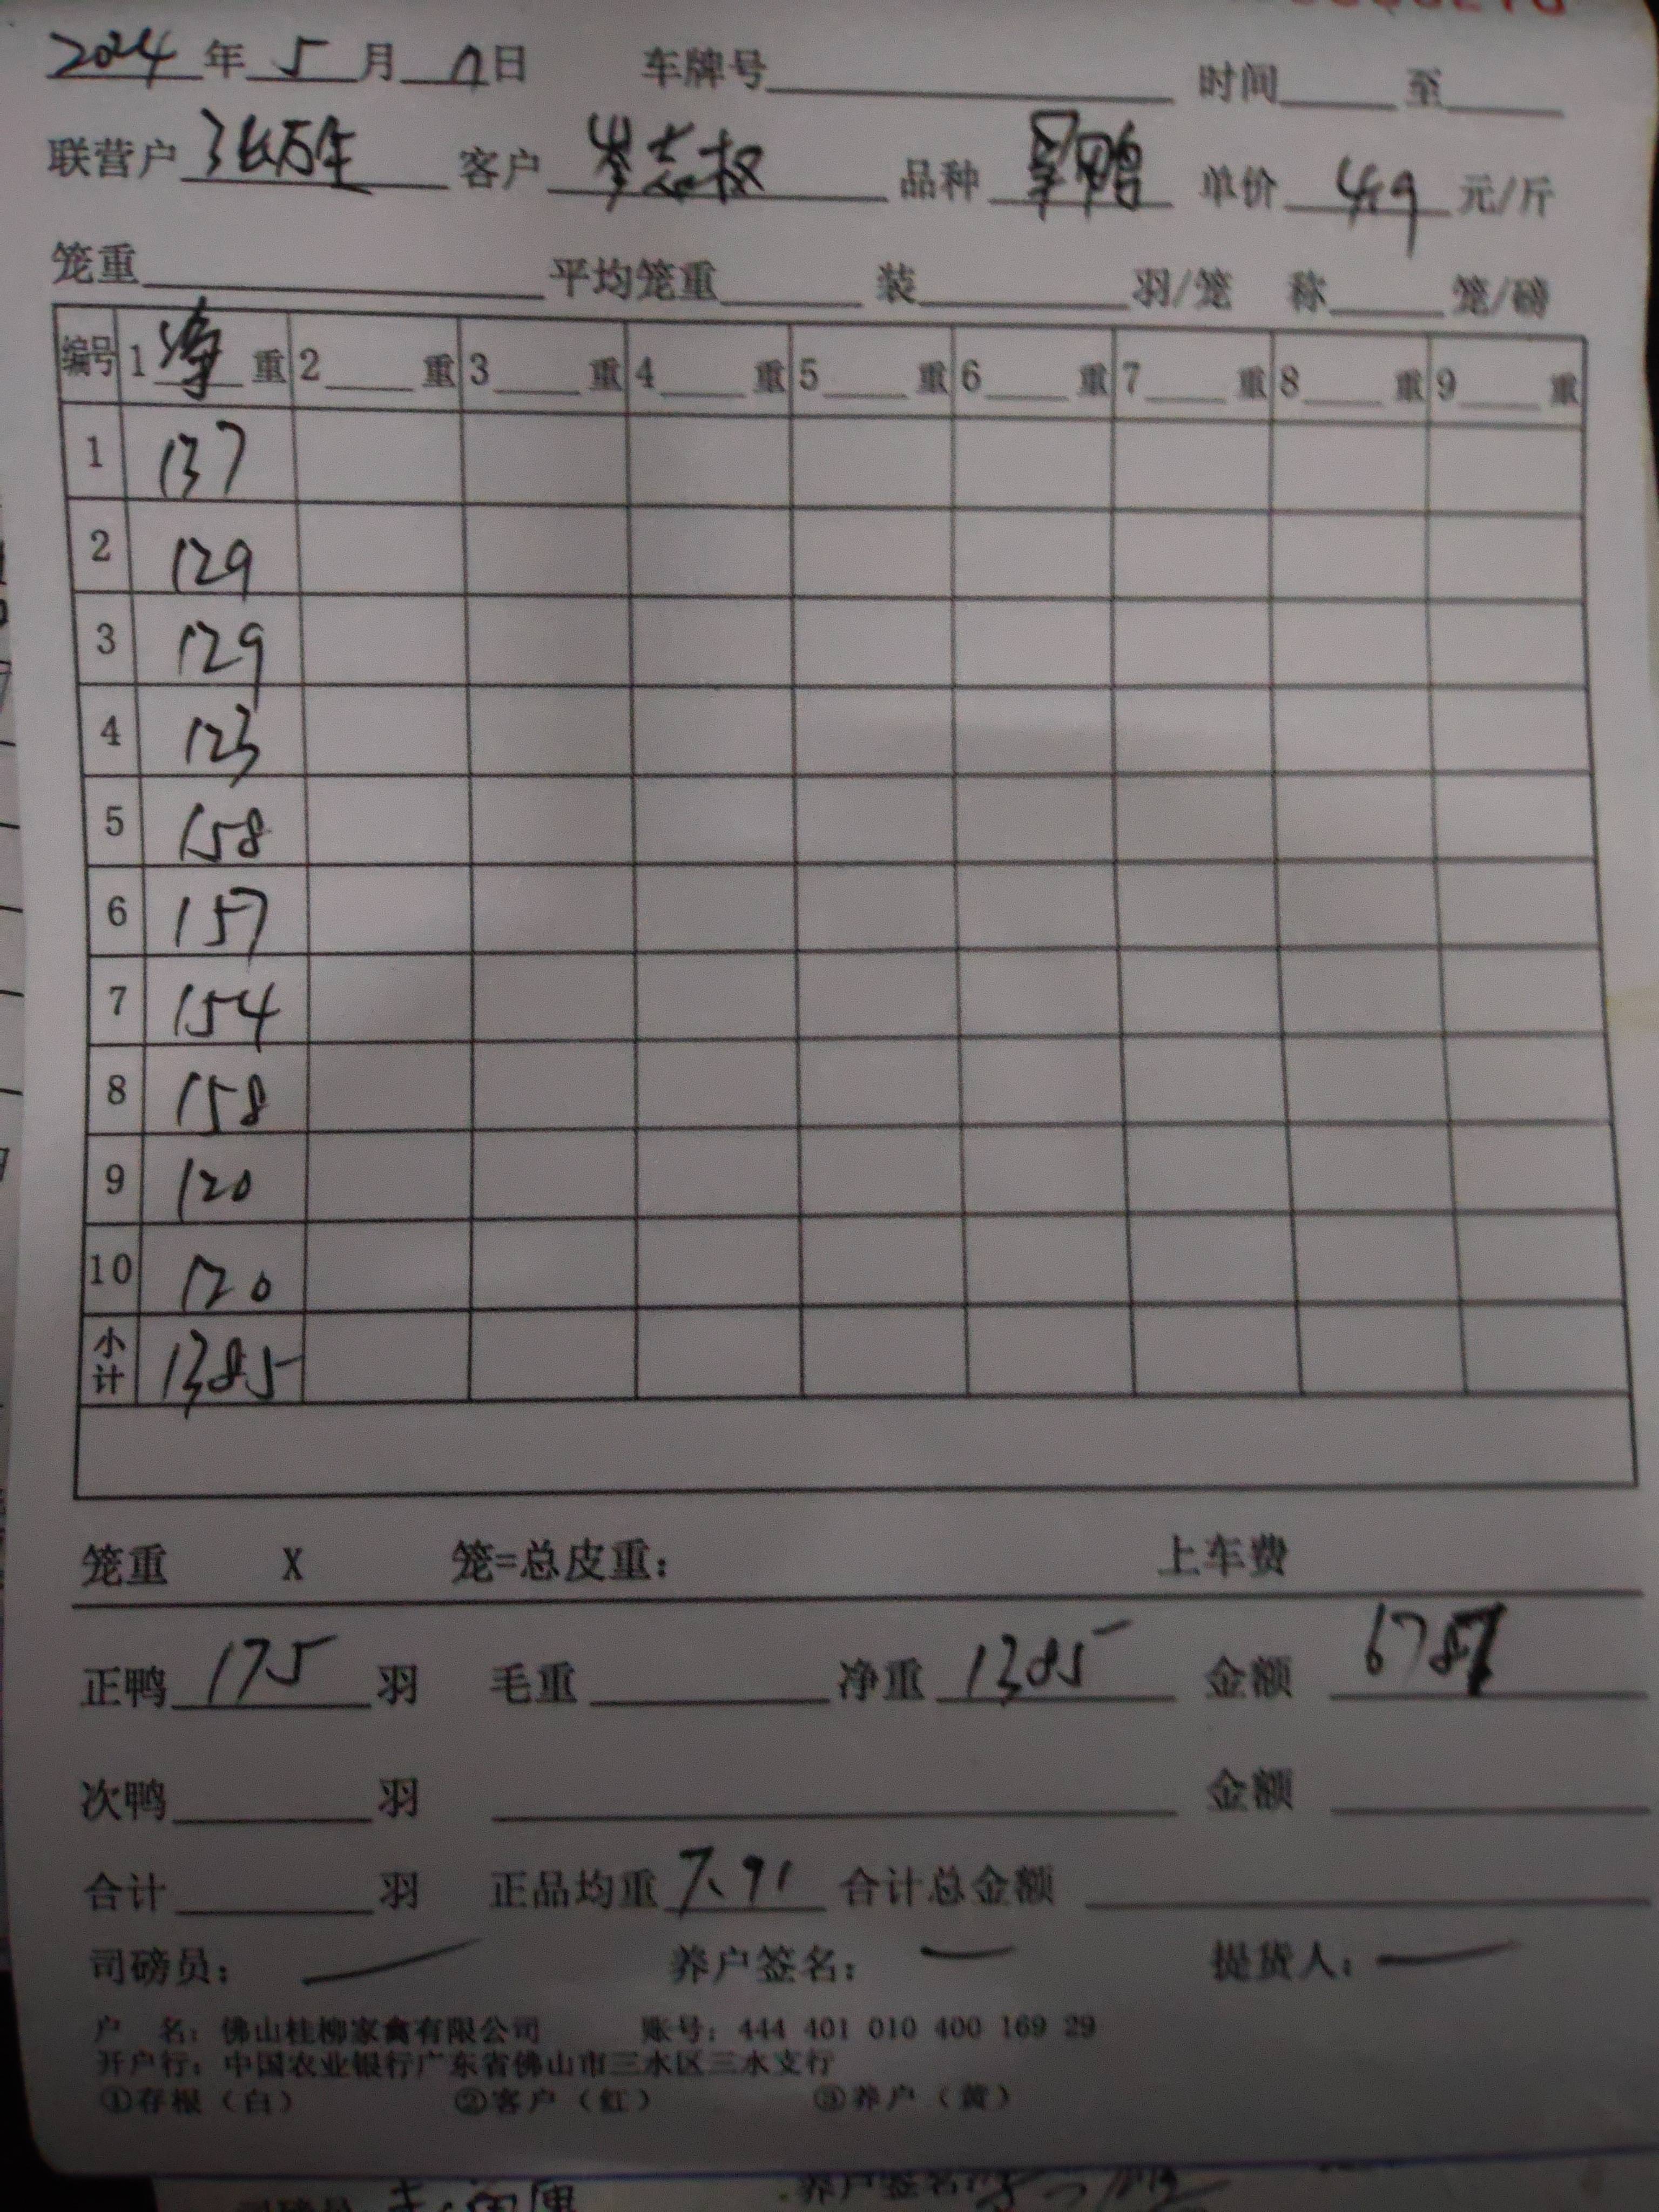 2024年 5 月 7 日 车牌号 时间 至
联营户 张万生 客户 岑志权 品种 单价 4.9 元/斤
笼重 平均笼重 装 羽/笼 称 笼/磅
编号 1 净 重 2 重 3 重 4 重 5 重 6 重 7 重 8 重 9 重
1 137
2 129
3 129
4 123
5 158
6 157
7 154
8 158
9 120
10 120
小计 1385
笼重 X 笼=总皮重: 上车费
正鸭 175 羽 毛重 净重 1385 金额 6787
次鸭 羽 金额
合计 羽 正品均重 7.91 合计总金额
司磅员: 养户签名: 提货人:
户 名: 佛山桂柳家禽有限公司 账号: 444 401 010 400 169 29
开户行: 中国农业银行广东省佛山市三水区三水支行
①存根(白) ②客户(红) ③养户(黄)
养户签名: